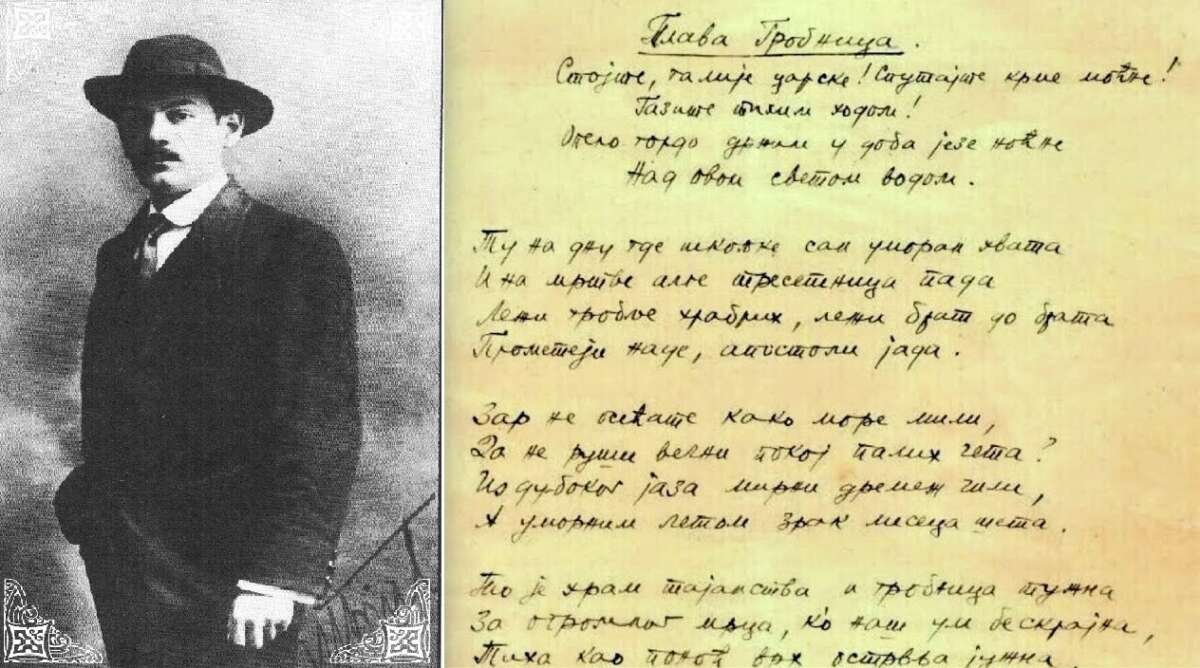 Плава Гробница.
Стојте, галије царске! Спутајте крме моћне!
Газите тихим ходом!
Опело гордо држим у доба језе ноћне
Над овом светом водом.
Ту на дну где шкољке сан уморан хвата
И на мртве алге тресетница пада
Лежи гробље храбрих, лежи брат до брата
Прометеји наде, апостоли јада.
Зар не осећате како море мили,
Да не руши вечни покој палих чета?
Из дубоког јаза мирни дремеж чили,
А уморним летом зрак месеца шета.
То је храм тајанства и гробница тужна
За огромног мрца, к'о наш ум бескрајна,
Тиха као поноћ врх острвља јужна